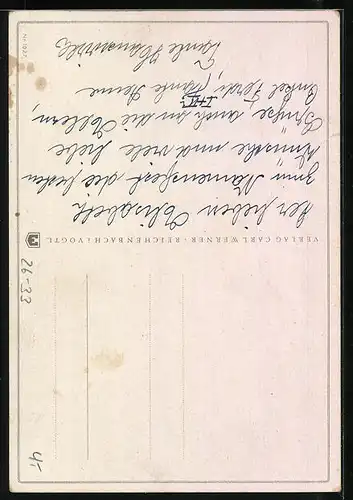 Der lieben Elisabeth
zum Namensfest die besten
Wünsche und viele liebe
Grüße auch an die Eltern,
Onkel Ferdi, Tante
I + II
Familie
VERLAG CARL WERNER · REICHENBACH i. VOGTL.
26-33